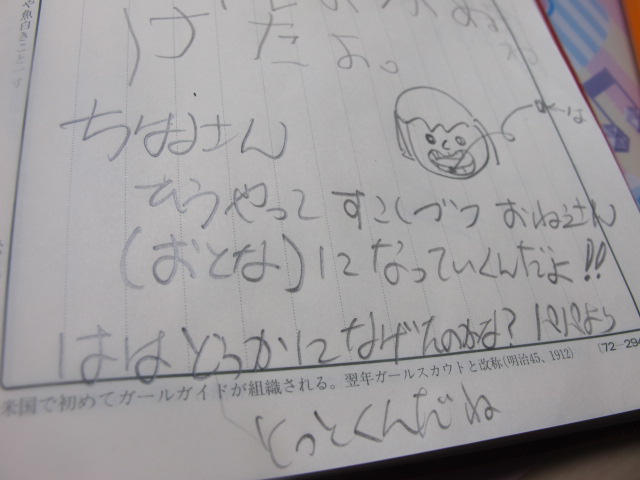 けたよ。
さん
こうやって すこしづつ おねえさん
(おとな)になっていくんだよ!!
はは どっかになげたのかな? ママより
米国で初めてガールガイドが組織される。翌年ガールスカウトと改称(明治45、1912)
(72-294
とっとくんだね
や魚白きこと一寸
は